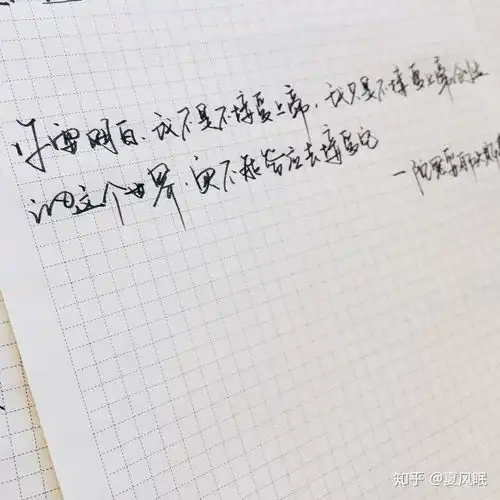 你要明白，我不是不接受上帝，我只是不接受上帝创造
的这个世界，更不能答应去接受它
—陀思妥耶夫斯
知乎 @夏风眠